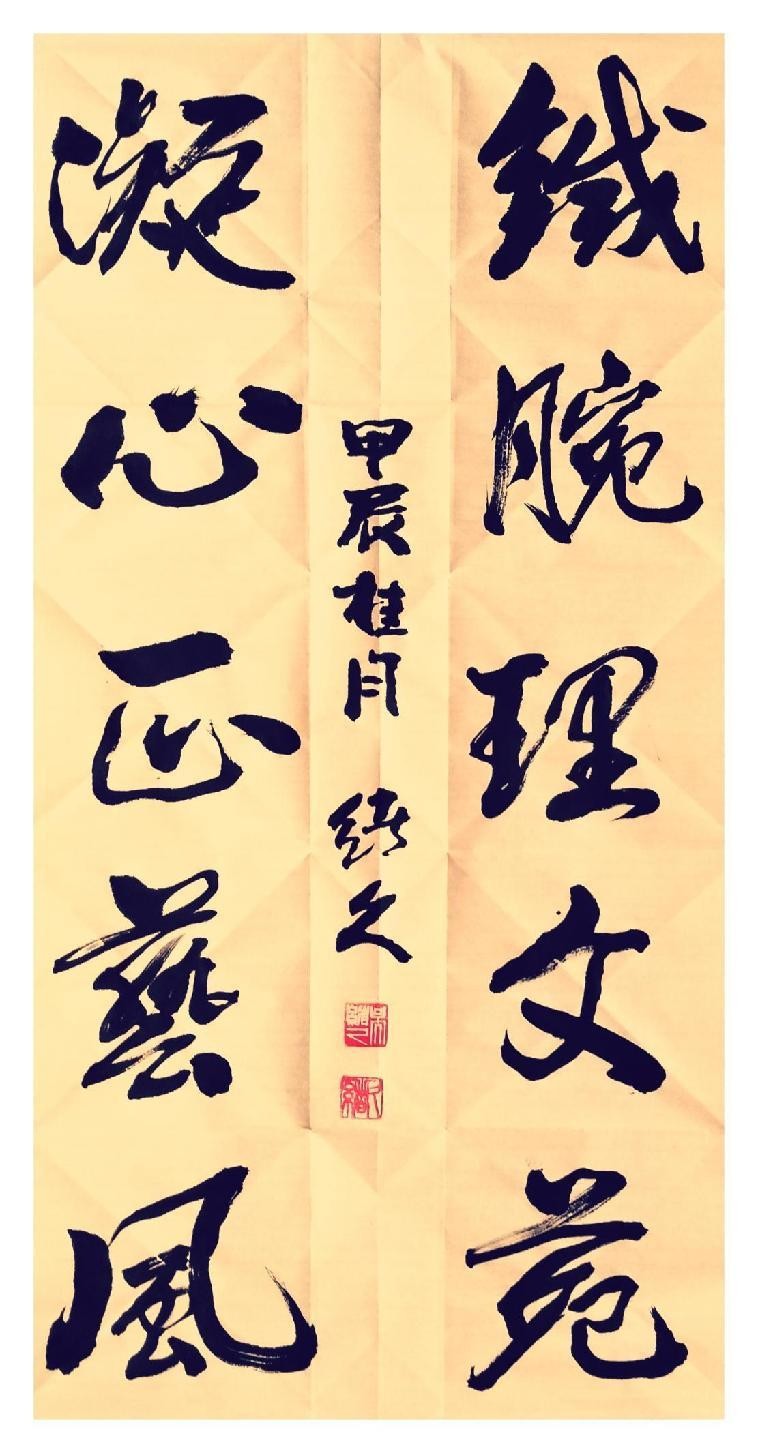 鐵腕理文苑
凝心正藝風
甲辰桂月 緒久